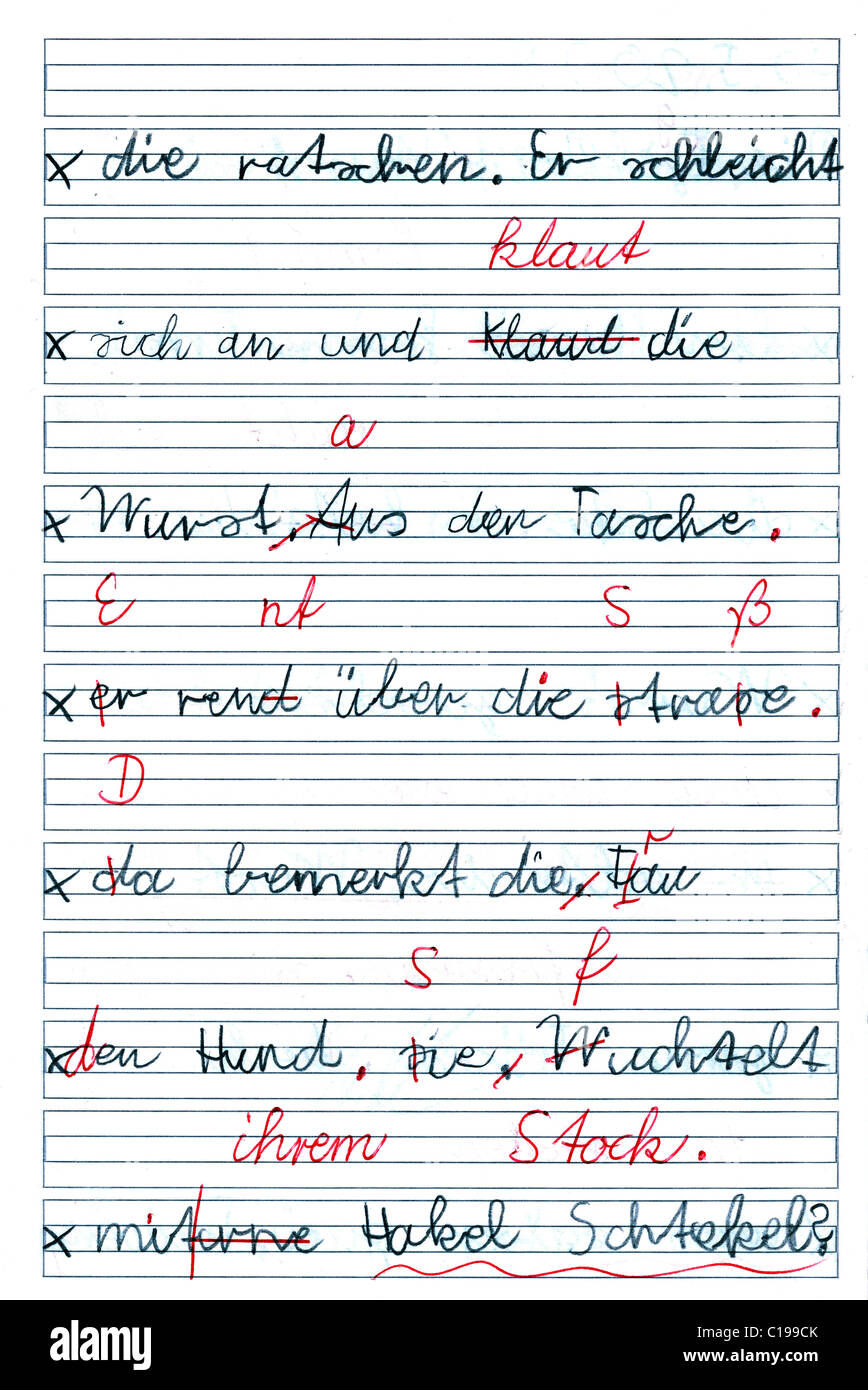 x die ratschen. Er schleicht
klaut
x sich an und Klaud die
a
x Wurst. Aus den Tasche.
E nt S ß
x er rend über die strase.
D
x da bemerkt die. Frau
S f
x den Hund. sie. Wuchtelt
ihrem Stock.
x mit Hakel Schtekel?
alamy
Image ID: C199CK
www.alamy.com